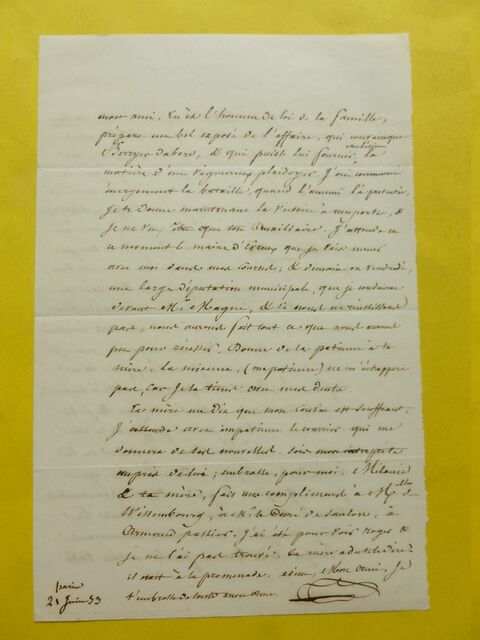 mon ami, toi l'homme de loi de la famille,
prépare un bel exposé de l'affaire, qui convainque
Berryer d'abord, & qui puisse lui fournir la
matière d'un vigoureux plaidoyer. J'ai commencé
énergiquement la bataille, quand l'ennemi l'a présentée,
Je te donne maintenant la victoire à remporter, &
je ne veux être que ton auxiliaire. J'attends en
ce moment le maire d'Evreux que je vais mener
avec moi dans mes courses; & demain ou vendredi,
une large députation municipale, que je conduirai
devant Mr. Magne, & si nous ne réussissons
pas, nous aurons fait tout ce que nous avons
pu pour réussir. Donne de la patience à ta
mère. la mienne, (ma patience) ne m'échappera
pas, car je la tiens avec mes dents.
Ta mère me dit que mon cousin est souffrant,
J'attends avec impatience le courrier qui me
donnera de ses nouvelles. sois mon interprète
auprès de lui; embrasse, pour moi, Mélanie
& ta mère, fais mes complimens à Mlle de
Wissembourg, à Mr le Curé de
Armand passier. J'ai été pour voir roger &
je ne l'ai pas trouvé.
il était à la promenade. adieu, Mon ami, Je
t'embrasse de toute mon âme.
paris
21 Juin 53